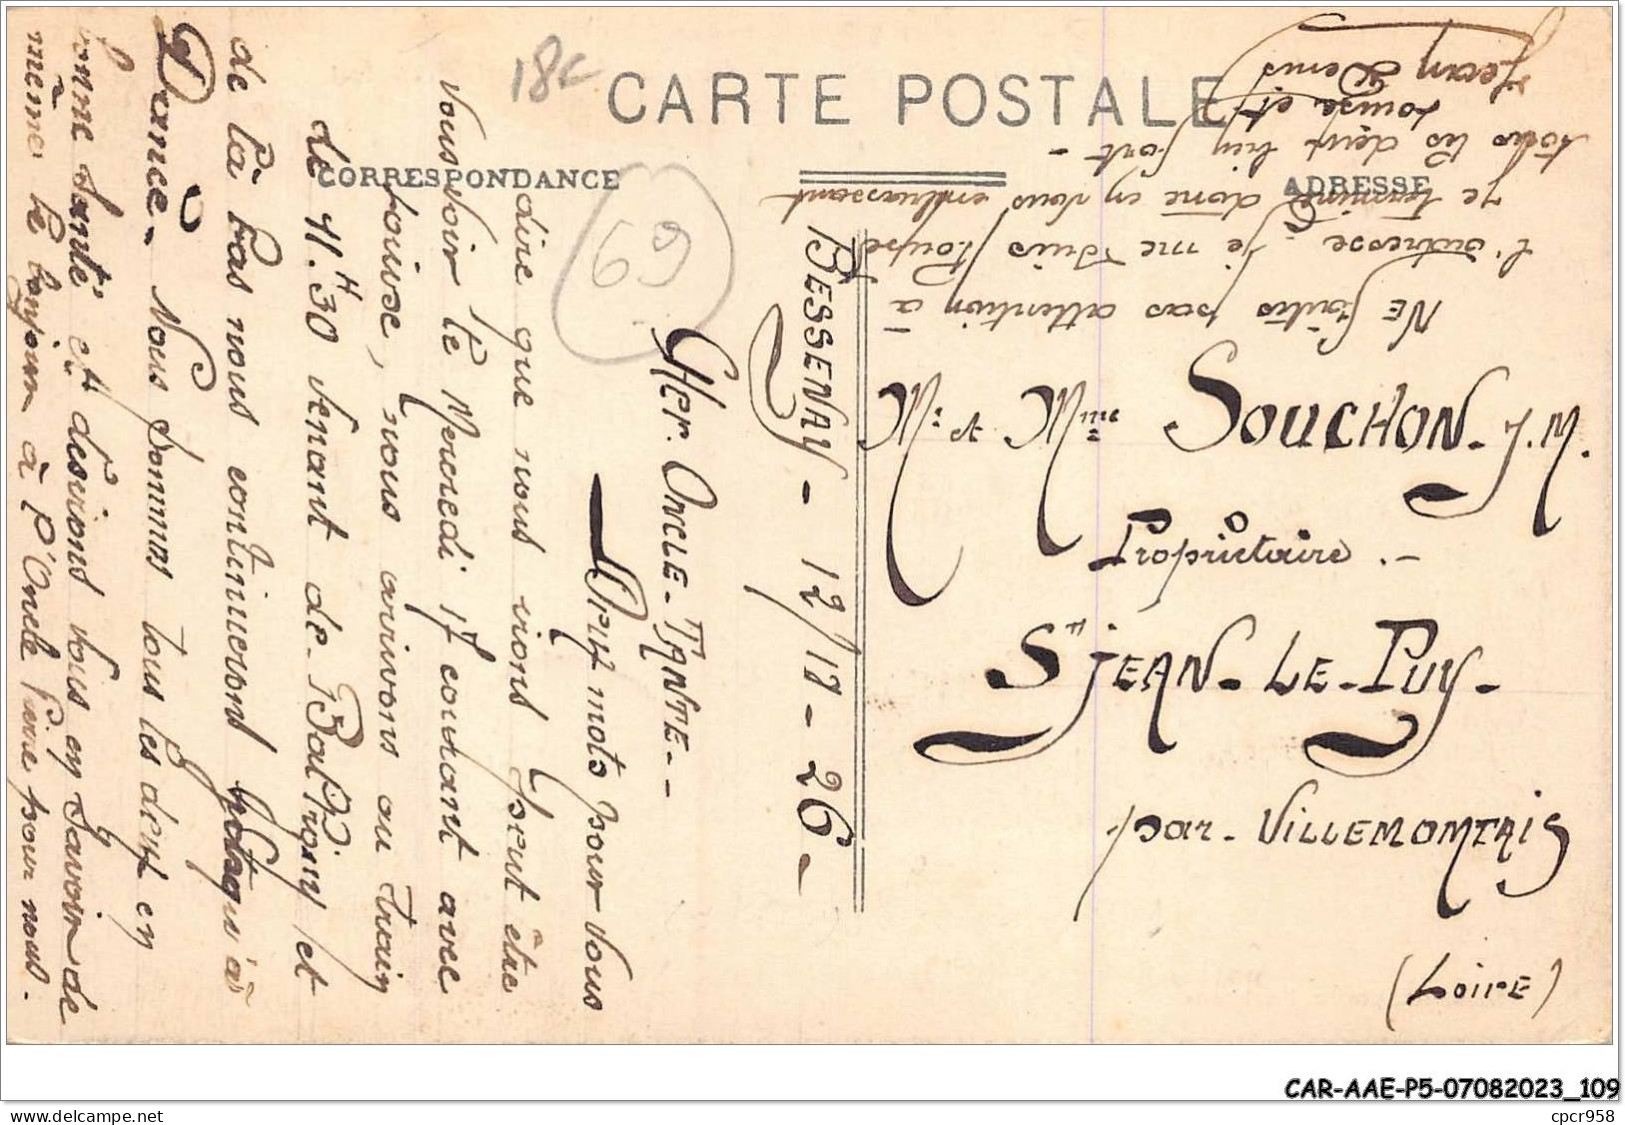 CARTE POSTALE
CORRESPONDANCE
ADRESSE
18c
69
BESSENAY - 12/18 - 26 -
Cher. ONCLE - TANTE - -
Deux mots pour vous
dire que nous irons peut être
vous voir le Mercredi 17 courant avec
Louise, nous arrivons au train
de 4H.30 venant de
et
de là bas nous continuerons jusqu'à
Nous sommes tous les deux en
bonne santé et desirons vous en savoir de
même le bonjour à l'Oncle Pierre pour nous.
Ne faites pas attention à
l'adresse. Je me suis
Je termine donc en vous embrassant
tous les deux bien fort -
Louise et
Jean Denis
Mr & Mme SOUCHON - J. M.
Propriétaire . -
St JEAN - LE - PUY -
par - VILLEMONTAIS
(Loire)
CAR-AAE-P5-07082023_109
www.delcampe.net
cpcr958